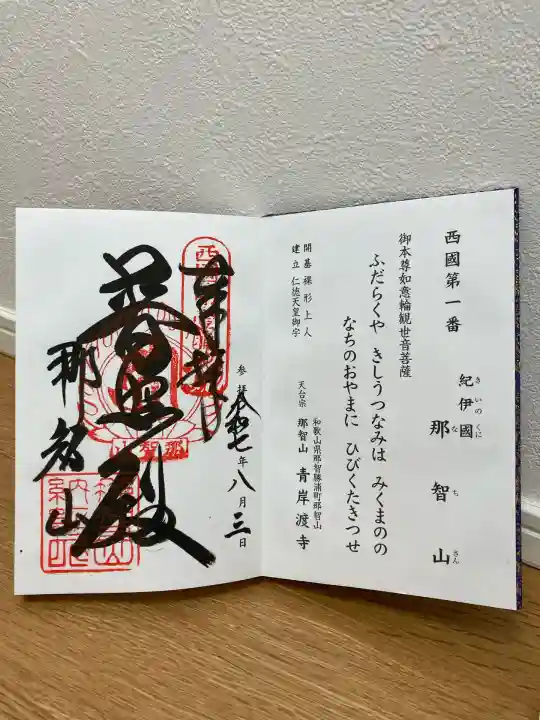 西國第一番
紀伊國 那智山
きいのくに なちさん
御本尊如意輪観世音菩薩
ふだらくや きしうつなみは みくまのの
なちのおやまに ひびくたきつせ
開基 裸形上人
建立 仁徳天皇御宇
和歌山県那智勝浦町那智山
天台宗 那智山 青岸渡寺
奉拝
参拝 令和七年八月三日
普照殿
那智山